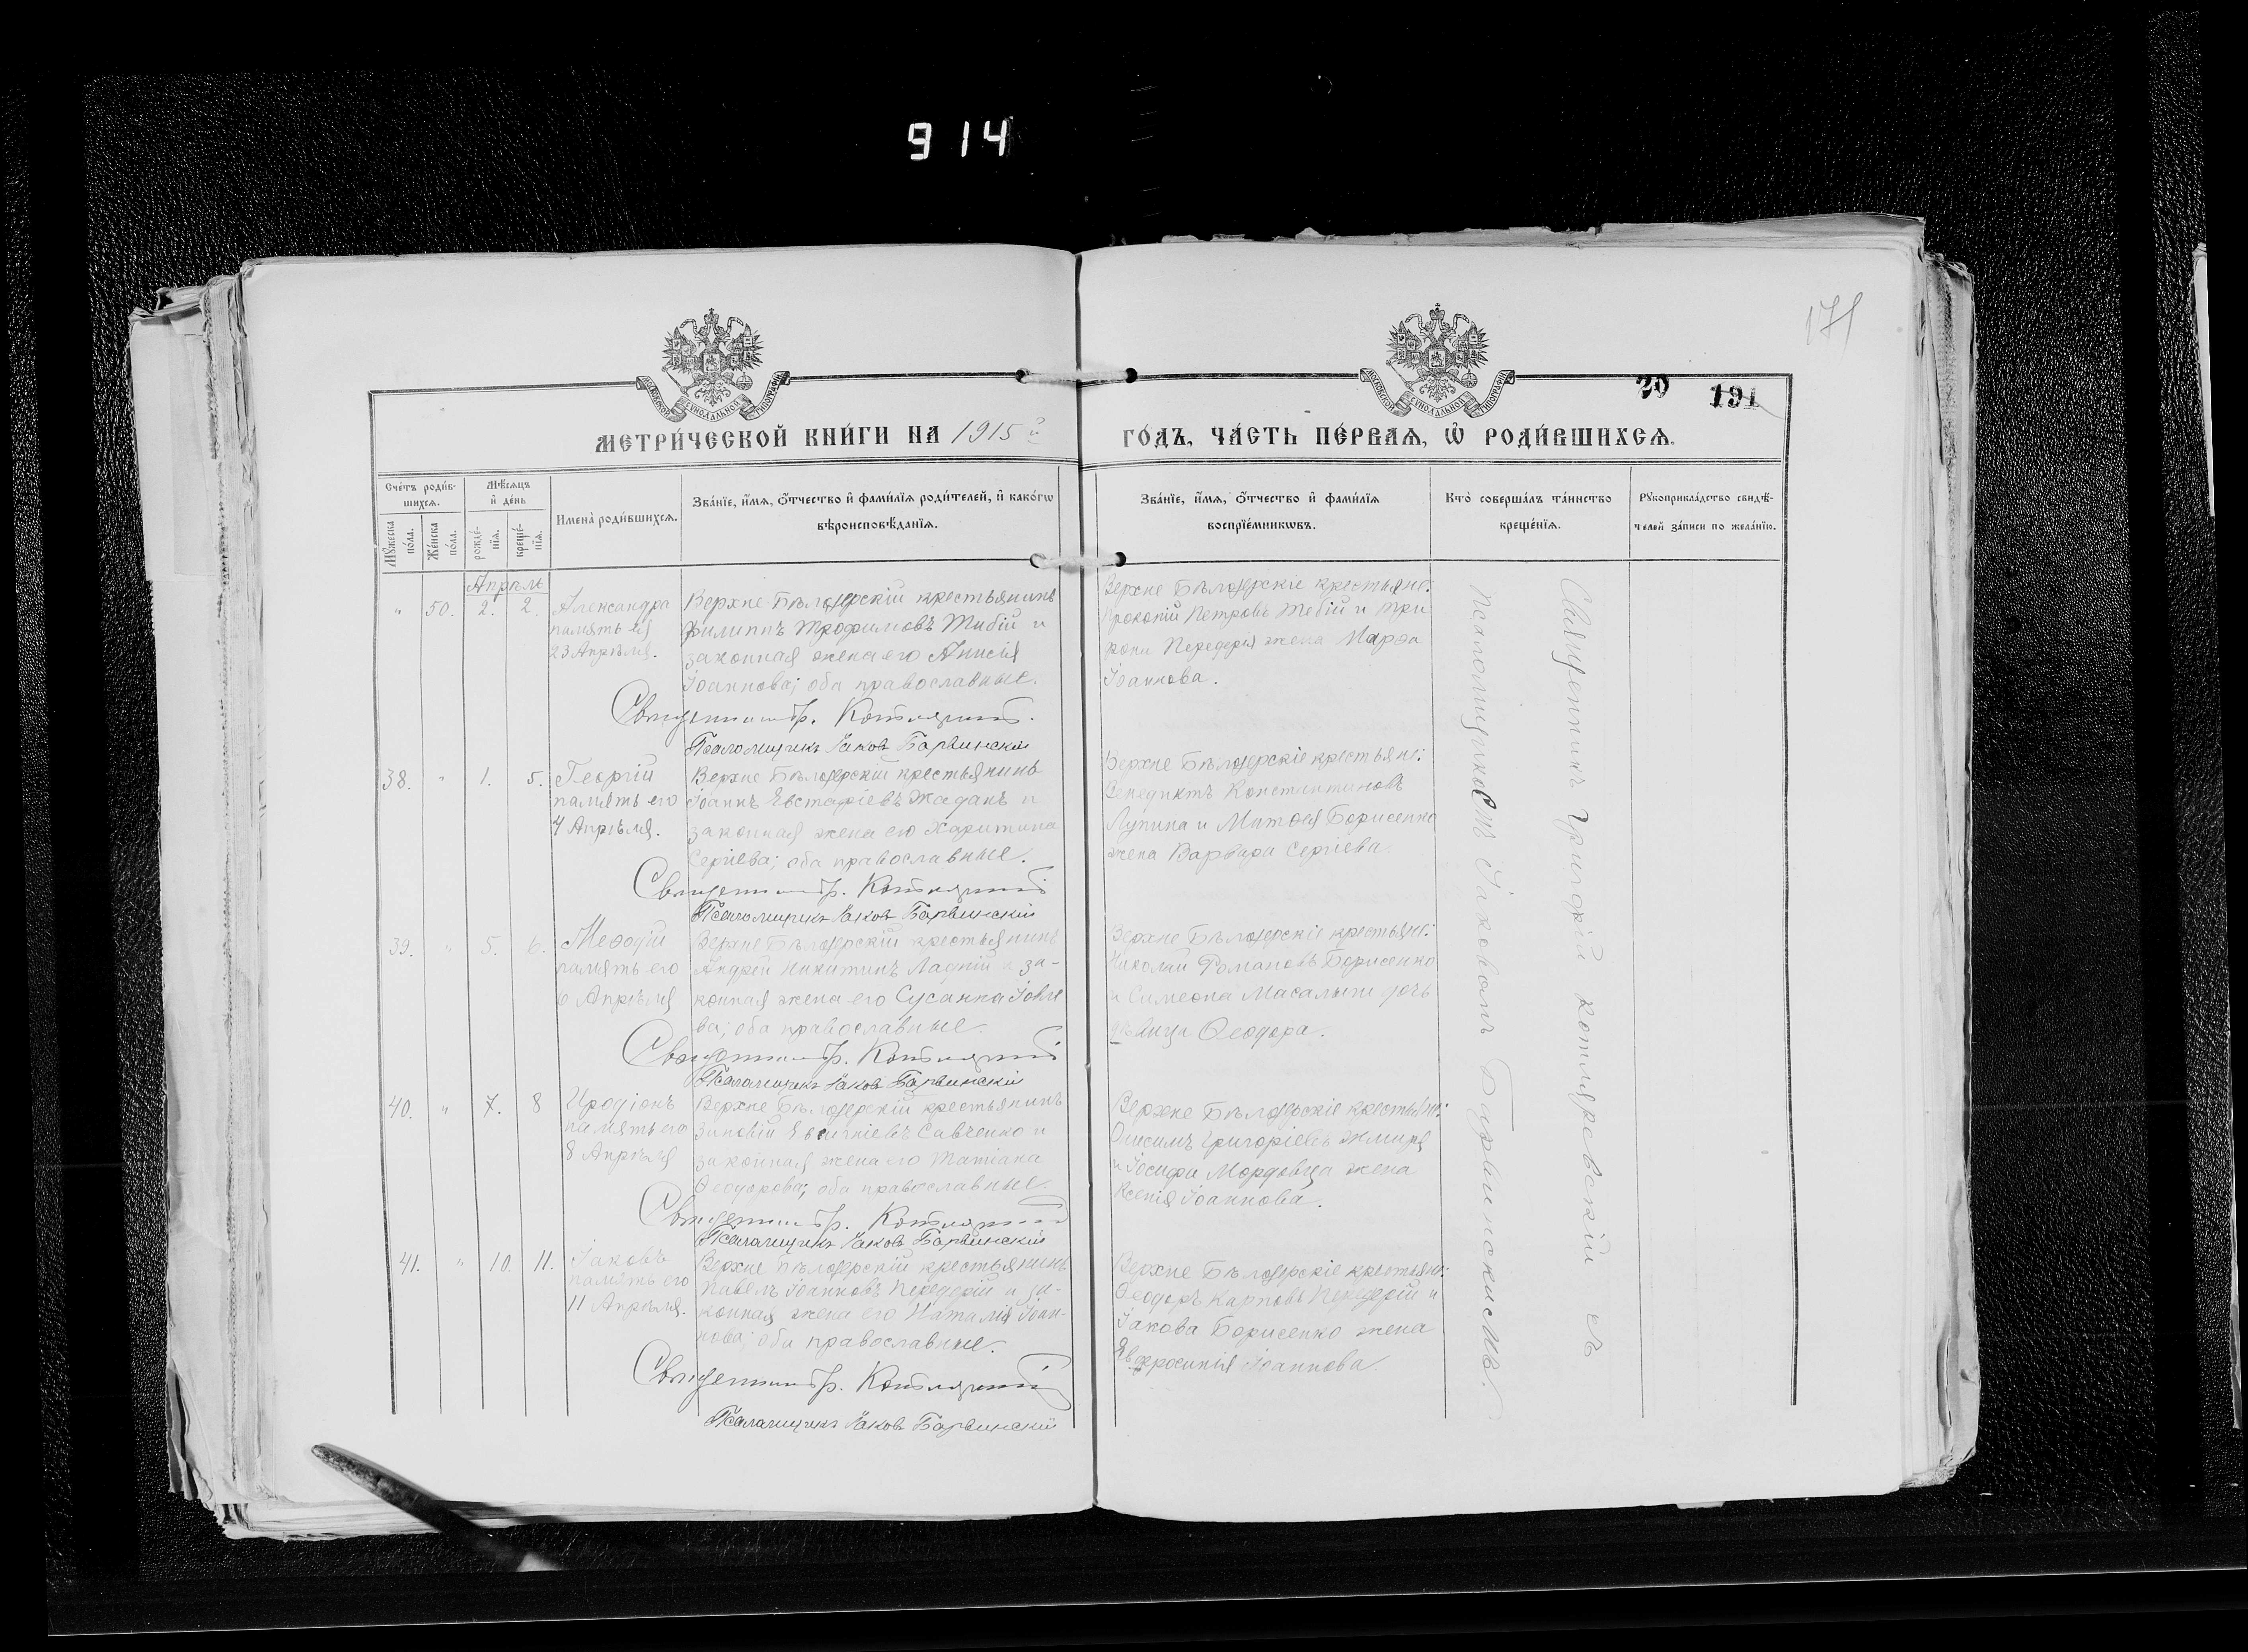 914
171
20 191
МЕТРИ́ЧЕСКОЙ КНИ́ГИ НА 1915й ГО́ДЪ, ЧА́СТЬ ПЕ́РВАѦ, Ѡ҆ РОДИ́ВШИХСѦ.
МОСКОВСКОЙ СѴНОДАЛЬНОЙ ТИПОГРАФІИ
МОСКОВСКОЙ СѴНОДАЛЬНОЙ ТИПОГРАФІИ
Сче́тъ роди́в-
шихсѧ.
Мꙋ́жеска по́ла.
Же́нска по́ла.
Мѣ́сѧцъ
и҆ де́нь
рожде́-
нїѧ.
креще́-
нїѧ.
И҆мена̀ роди́вшихсѧ.
Зва́нїе, и҆́мѧ, ѻ҆́тчество и҆ фами́лїѧ роди́телей, и҆ како́гѡ
вѣроисповѣ́данїѧ.
Зва́нїе, и҆́мѧ, ѻ҆́тчество и҆ фами́лїѧ
воспрїе́мникѡвъ.
Кто̀ соверша́лъ та́инство
креще́нїѧ.
Рꙋкоприкла́дство свидѣ́-
телей за́писи по жела́нїю.
Апрѣль
" 50. 2. 2.
Александра
память ея
23 Апрѣля.
Верхне Бѣлозерскій крестьянинъ
Филиппъ Трофимовъ Тибій и
законная жена его Анисія
Іоаннова; оба православные.
Священникъ Гр. Котляревскій
Псаломщикъ Іаковъ Барвинскій
Верхне Бѣлозерскіе крестьяне:
Прокопій Петровъ Тебій и
Передерія жена Марфа
Іоаннова.
38. " 1. 5.
Георгій
память его
4 Апрѣля.
Верхне Бѣлозерскій крестьянинъ
Іоаннъ Евстафіевъ Жаданъ и
законная жена его Харитина
Сергіева; оба православные.
Священникъ Гр. Котляревскій
Псаломщикъ Іаковъ Барвинскій
Верхне Бѣлозерскіе крестьяне:
Венедиктъ Константиновъ
Лупина и Матѳея Борисенко
жена Варвара Сергіева.
39. " 5. 6.
Меѳодій
память его
6 Апрѣля
Верхне Бѣлозерскій крестьянинъ
Андрей Никитинъ Ладній и за-
конная жена его Сусанна Іовле
ва; оба православные.
Священникъ Гр. Котляревскій
Псаломщикъ Іаковъ Барвинскій
Верхне Бѣлозерскіе крестьяне:
Николай Романовъ Борисенко
и Симеона Масалыги дочь
дѣвица Ѳеодора.
40. " 7. 8
Иродіонъ
память его
8 Апрѣля
Верхне Бѣлозерскій крестьянинъ
Зиновій Савченко и
законная жена его Татіана
Ѳеодорова; оба православные.
Священникъ Гр. Котляревскій
Псаломщикъ Іаковъ Барвинскій
Верхне Бѣлозерскіе крестьяне:
Онисимъ Григоріевъ Жмиря
и Іосифа Мордовца жена
Ксенія Іоаннова.
41. " 10. 11.
Іаковъ
память его
11 Апрѣля.
Верхне Бѣлозерскій крестьянинъ
Павелъ Іоанновъ Передерій и за-
конная жена его Наталія Іоан-
нова; оба православные.
Священникъ Гр. Котляревскій
Псаломщикъ Іаковъ Барвинскій
Верхне Бѣлозерскіе крестьяне:
Ѳеодоръ Карповъ Передерій и
Іакова Борисенко жена
Евфросинія Іоаннова
Священникъ Григорій Котляревскій съ
псаломщикомъ Іаковомъ Барвинскимъ.